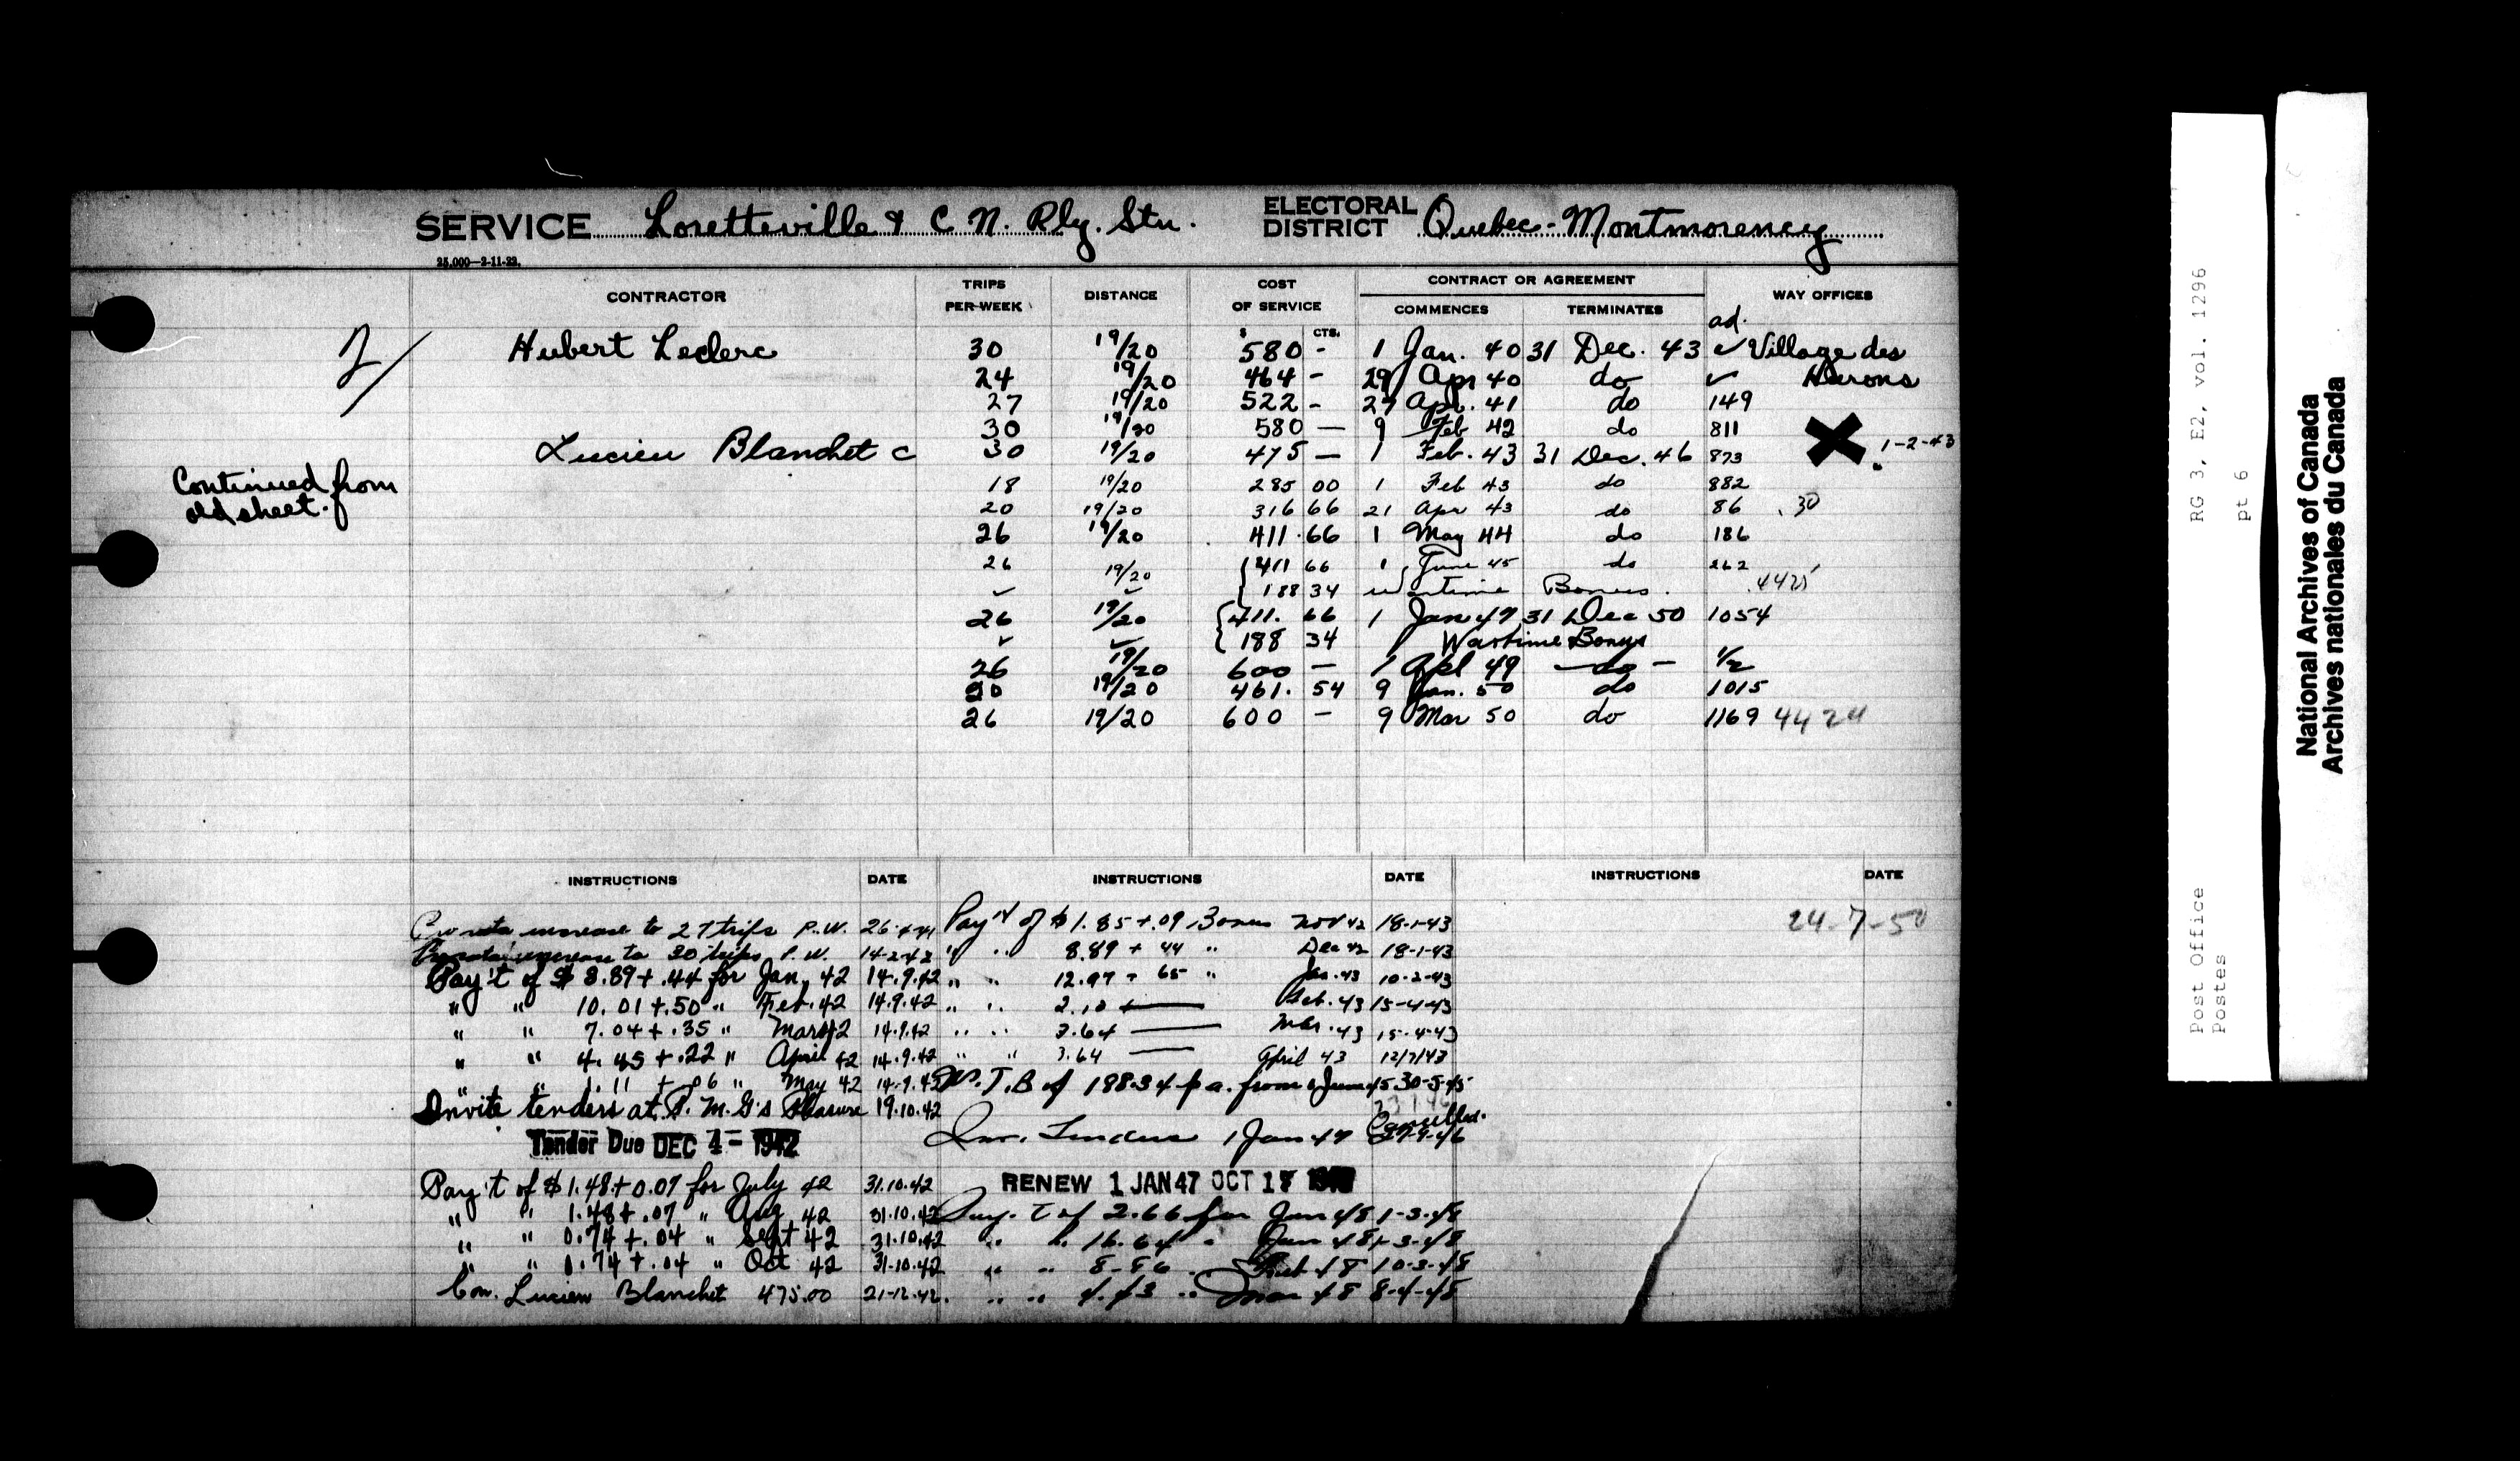 SERVICE Loretteville & C N. Rly. Stn. ELECTORAL DISTRICT Quebec-Montmorency
25,000—2-11-23.
CONTRACTOR TRIPS PER WEEK DISTANCE COST OF SERVICE CONTRACT OR AGREEMENT COMMENCES TERMINATES WAY OFFICES
$ CTS. ad.
2/ Hubert Leclerc 30 19/20 580 - 1 Jan. 40 31 Dec. 43 ✓ Village des
24 19/20 464 - 29 Apr 40 do ✓ Hurons
27 19/20 522 - 27 Apl. 41 do 149
30 19/20 580 — 9 Feb 42 do 811
Lucien Blanchet c 30 19/20 475 — 1 Feb. 43 31 Dec. 46 873 1-2-43
Continued from
old sheet.
18 19/20 285 00 1 Feb 43 do 882
20 19/20 316 66 21 Apr 43 do 86 .30
26 19/20 411.66 1 May 44 do 186
26 19/20 411 66 1 June 45 do 262
✓ ✓ 188 34 wartime Bonus. 4425
26 19/20 411. 66 1 Jan 47 31 Dec 50 1054
✓ ✓ 188 34 Wartime Bonus
26 19/20 600 — 1 Apl 49 — do — 1/2
20 19/20 461. 54 9 Jan. 50 do 1015
26 19/20 600 - 9 Mar 50 do 1169 4424
INSTRUCTIONS DATE INSTRUCTIONS DATE INSTRUCTIONS DATE
Pro rata increase to 27 trips P.W. 26-4-41
Pro rata increase to 30 trips P.W. 14-2-42
Pay't of $ 8.89 + .44 for Jan. 42 14.9.42
" " 10.01 + .50 " Feb. 42 14.9.42
" " 7.04 + .35 " Mar 42 14.9.42
" " 4.45 + .22 " April 42 14.9.42
" " 1.11 + .06 " May 42 14.9.42
Invite tenders at P.M.G's Pleasure 19.10.42
Tender Due DEC 4 - 1942
Pay't of $1.48 + 0.07 for July 42 31.10.42
" " 1.48 + .07 " Aug 42 31.10.42
" " 0.74 + .04 " Sept 42 31.10.42
" " 0.74 + .04 " Oct 42 31.10.42
Con. Lucien Blanchet 475.00 21-12-42
Pay't of $ 1.85 + .09 Bonus Nov 42 18-1-43
" " 8.89 + 44 " Dec 42 18-1-43
" " 12.97 + 65 " Jan. 43 10-2-43
" " 2.10 + — Feb. 43 15-4-43
" " 3.64 — Mar. 43 15-4-43
" " 3.64 — April 43 12/7/43
W.T.B of 188.34 p a. from 1 June 45 30-5-45
Cancelled.
Inv. Tenders 1 Jan 47 27-9-46
RENEW 1 JAN 47 OCT 17
Pay. t of 2.66 for Jan 48 1-3-48
" " 16.64 " Jan 48 1-3-48
" " 8-86 " Feb 48 10-3-48
" " 4.43 " Mar 48 8-4-48
24-7-50
Post Office RG 3, E2, vol. 1296
Postes pt 6
National Archives of Canada
Archives nationales du Canada